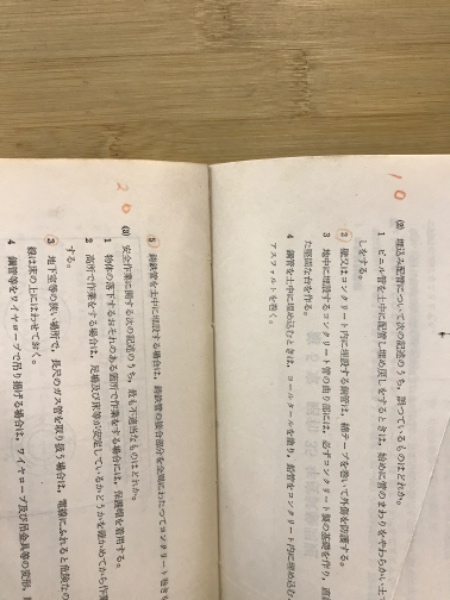 10
(2) 埋込み配管について次の記述のうち，誤つているものはどれか。
1 ビニル管を土中に配管し埋め戻しをするときは，始めに管のまわりをやわらかい土
しをする。
2 壁又はコンクリート内に埋設する鋼管は，綿テープを巻いて外傷を防護する。
3 地中に埋設するコンクリート管の曲り部には，必ずコンクリート製の基礎を作り，直
た堅固な台を作る。
4 鋼管を土中に埋め込むときは，コールタールを塗り，鉛管をコンクリート内に埋め込む
アスファルトを巻く。
20
5 鋳鉄管を土中に埋設する場合は，鋳鉄管の接合部分を全周にわたつてコンクリート巻きを
(3) 安全作業に関する次の記述のうち，最も不適当なものはどれか。
1 物体の落下するおそれのある箇所で作業をする場合には，保護帽を着用する。
2 高所で作業をする場合は，足場及び床等が安定しているかどうかを確かめてから作業
する。
3 地下室等の狭い場所で，長尺のガス管を取り扱う場合は，電線にふれると危険なの
線は床の上にはわせておく。
4 鋼管等をワイヤロープで吊り揚げる場合は，ワイヤロープ及び吊金具等の変形，